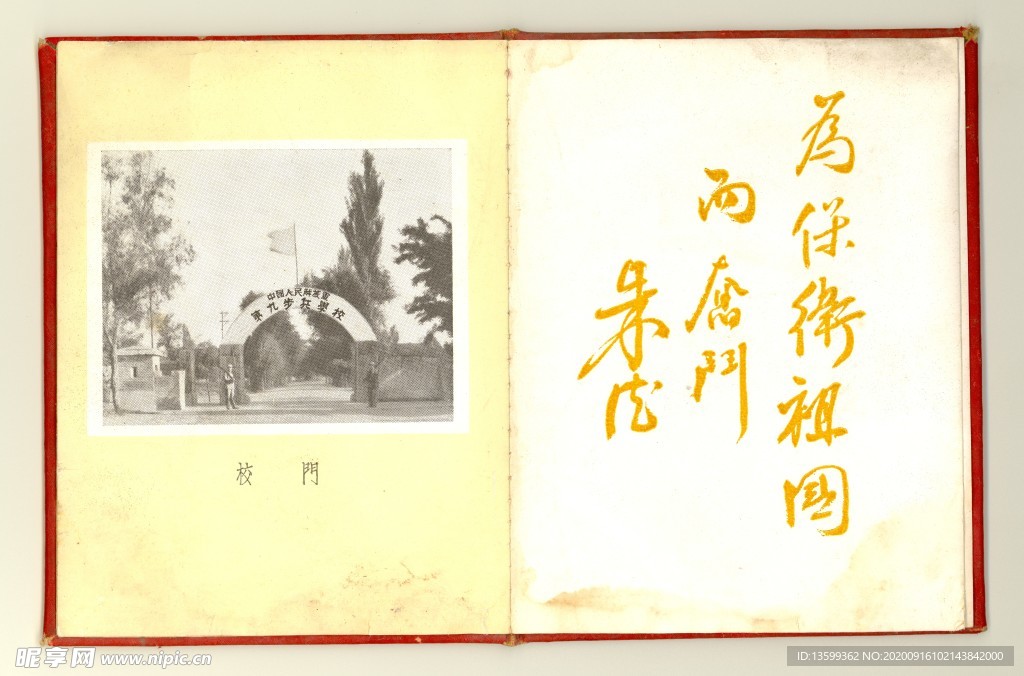 中国人民解放軍
第九步兵學校
校門
為保衛祖國
而奮鬥
朱德
昵享网 www.nipic.cn
ID:13599362 NO:20200916102143842000